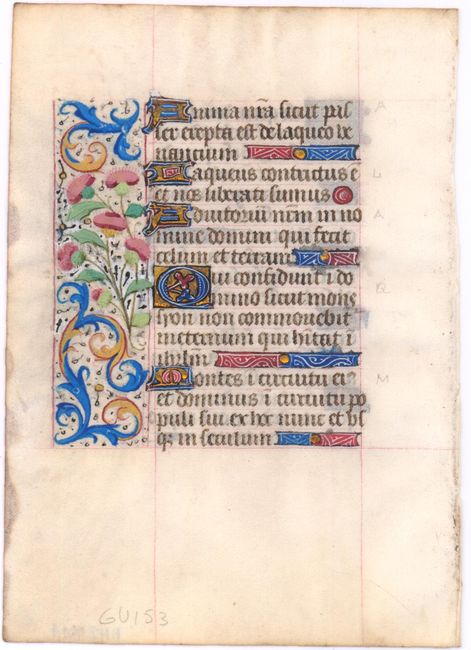 Anima nr̄a sicut pas
ser erepta est de laqueo ve
nancium
Laqueus contritus e
et nos liberati sumus
Adiutoriū nr̄m in no
mine domini qui fecit
celum et terram
Qui confidunt ī do
mino sicut mons
syon non commovebit
in eternum qui habitat ī
ihrlm
Montes ī circuitu ei
et dominus ī circuitu po
puli sui ex hoc nunc et us
q̄ in seculum
A
L
A
Q
M
GU153